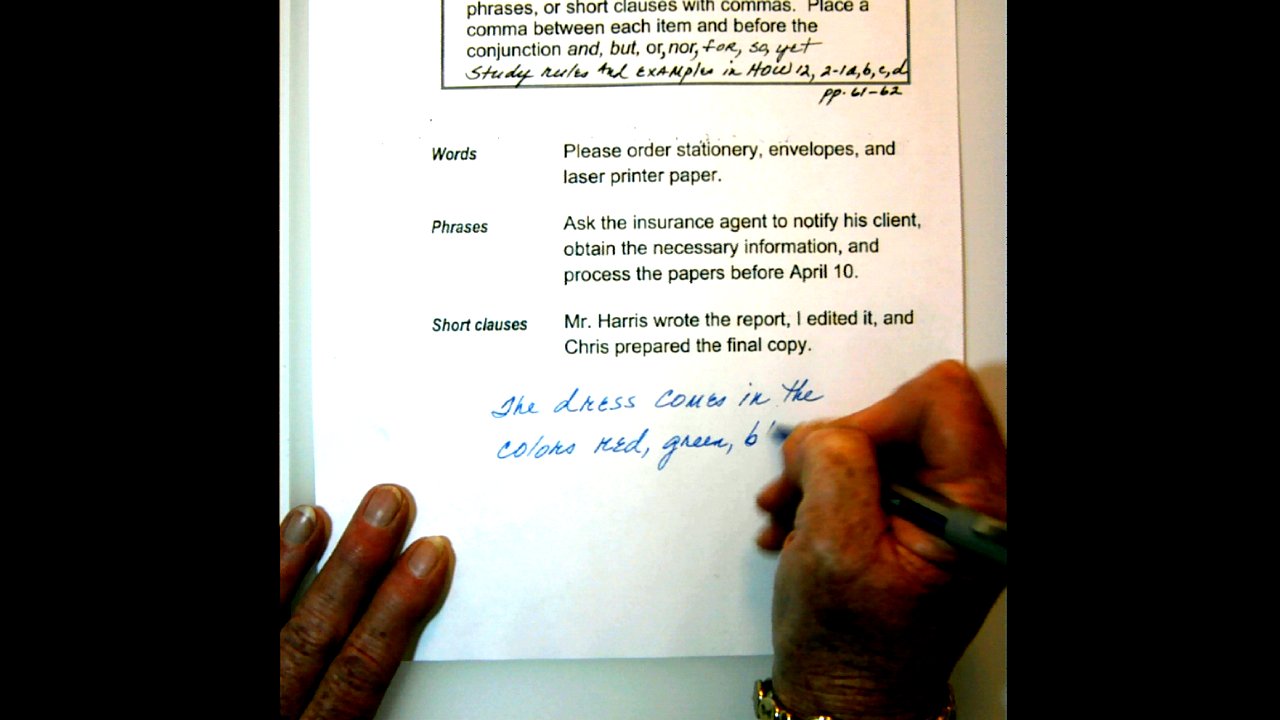 phrases, or short clauses with commas. Place a
comma between each item and before the
conjunction and, but, or, nor, for, so, yet
Study rules and examples in HOW 12, 2-1a,b,c,d
pp. 61-62
Words
Please order stationery, envelopes, and
laser printer paper.
Phrases
Ask the insurance agent to notify his client,
obtain the necessary information, and
process the papers before April 10.
Short clauses
Mr. Harris wrote the report, I edited it, and
Chris prepared the final copy.
The dress comes in the
colors red, green,